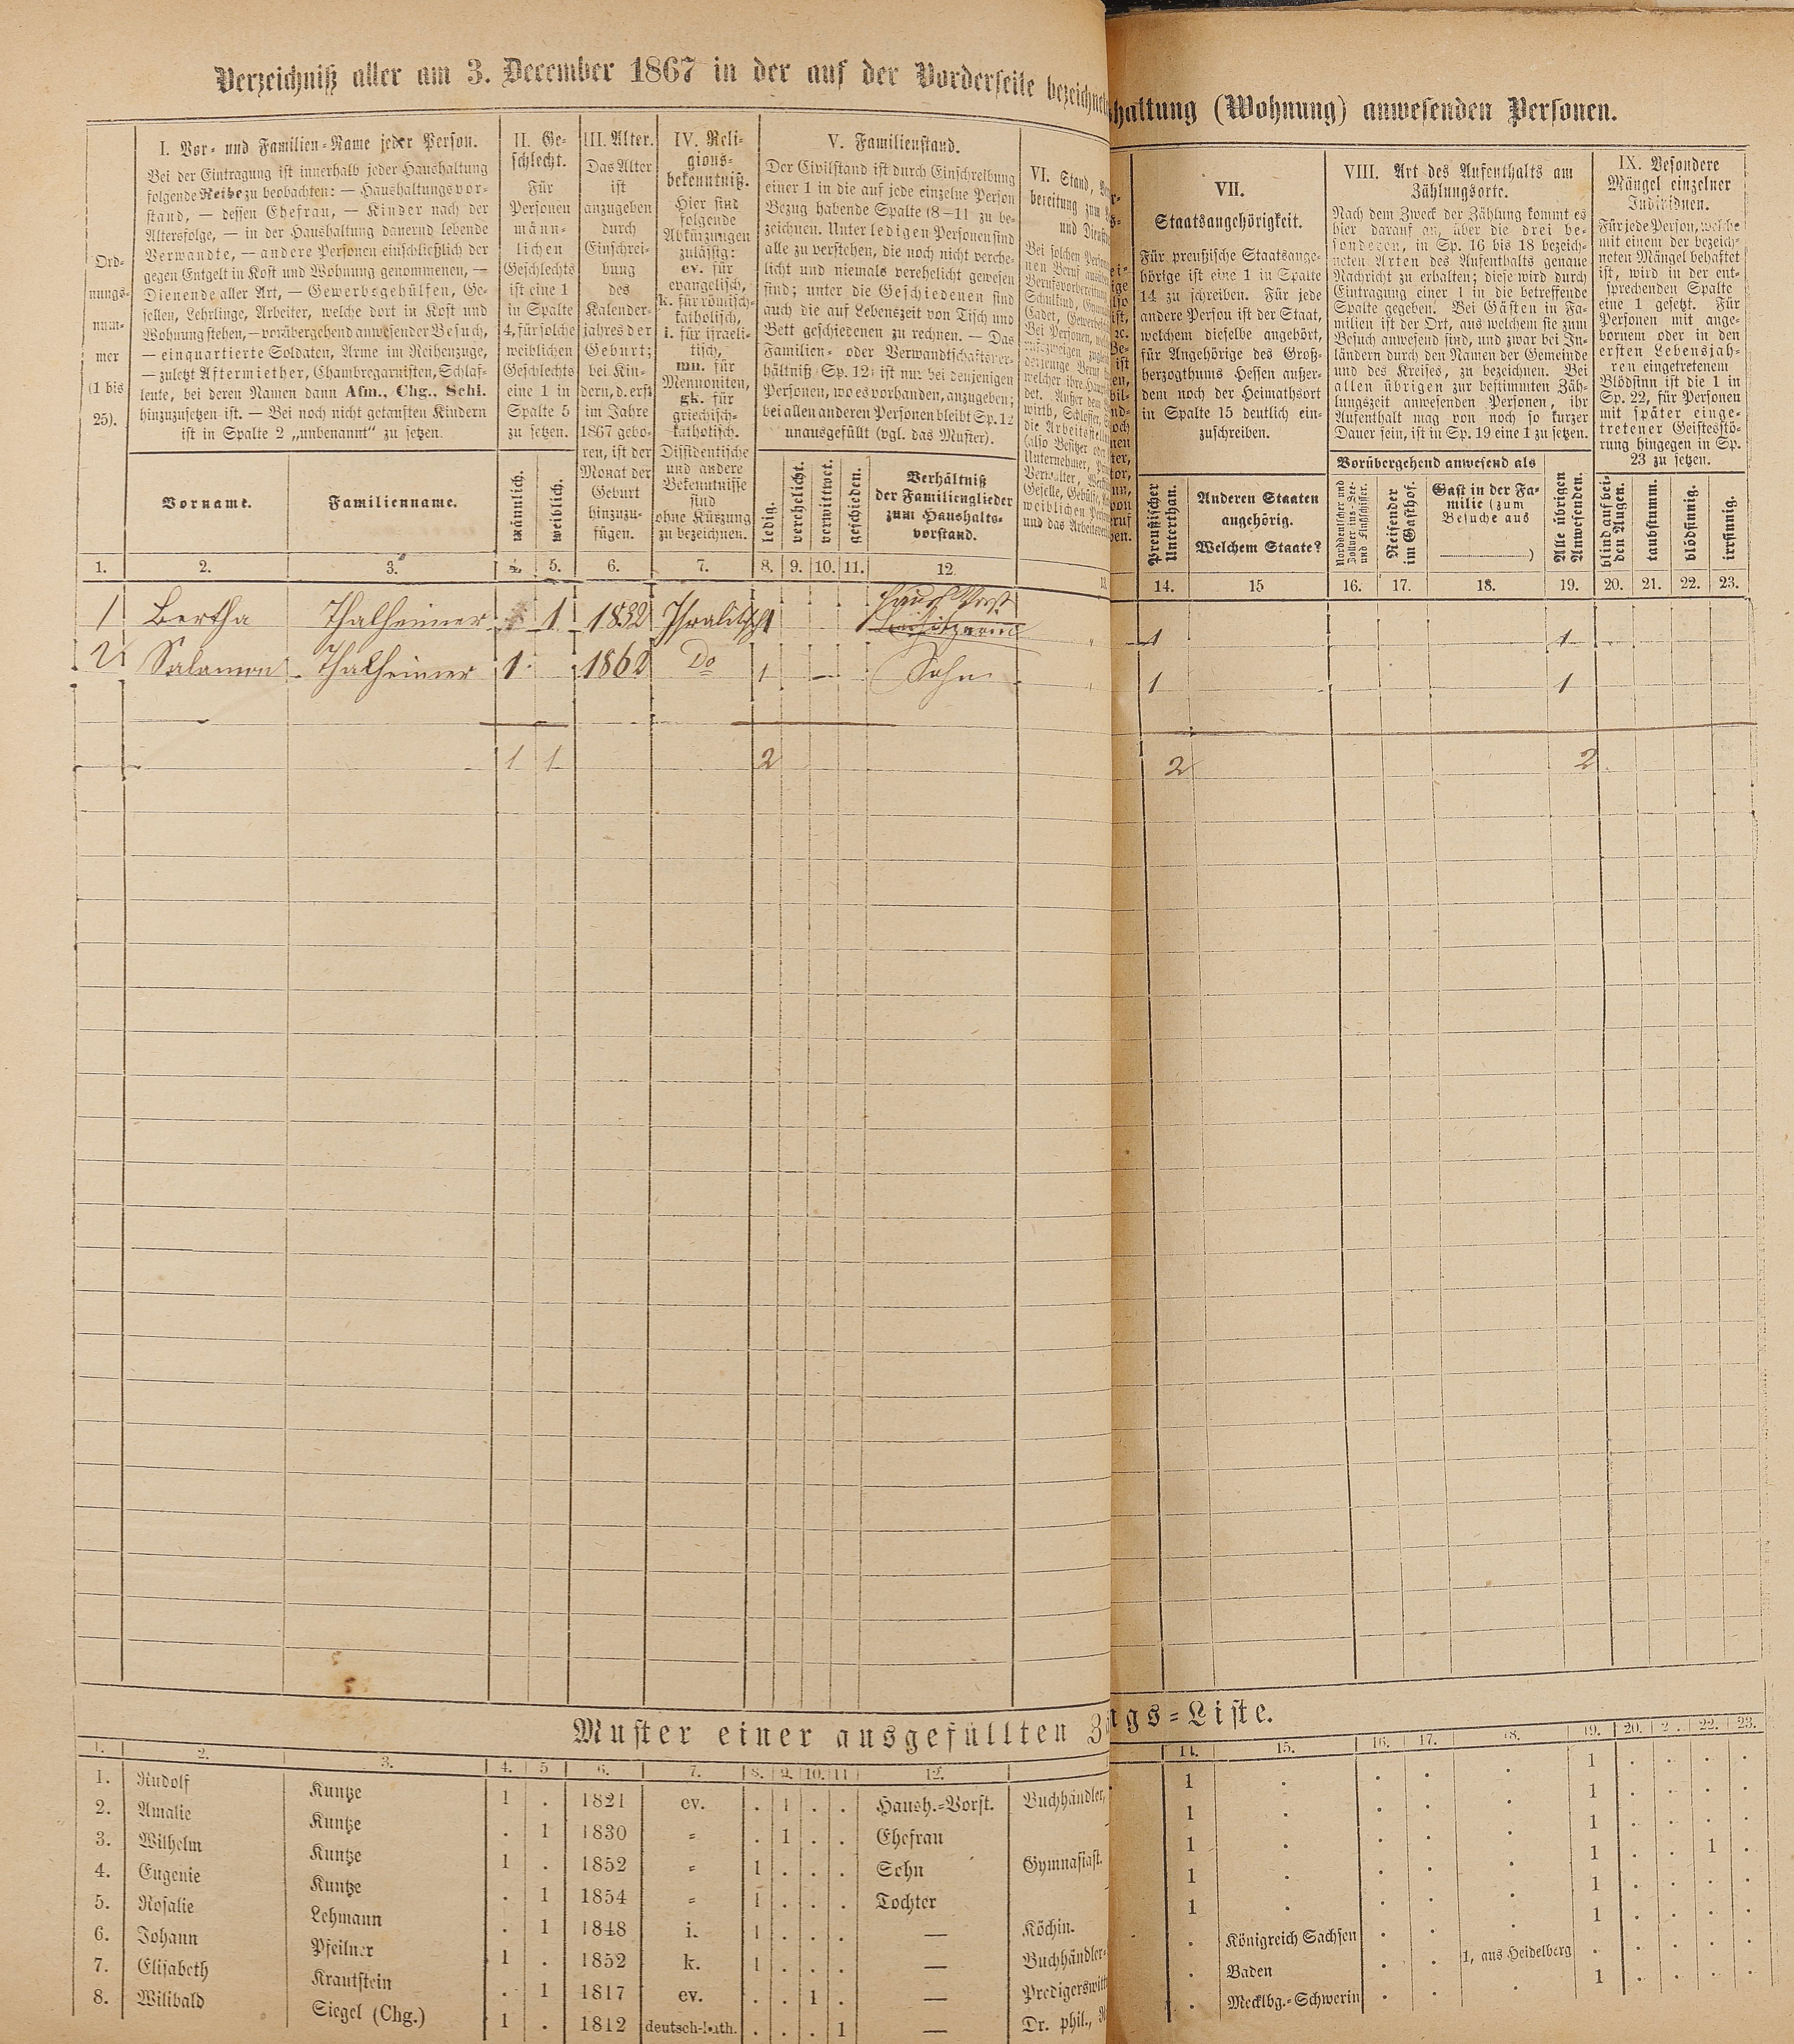 Verzeichniß aller am 3. December 1867 in der auf der Vorderseite bezeichnet
haltung (Wohnung) anwesenden Personen.
Ord-
nungs-
num-
mer
(1 bis
25).
I. Vor- und Familien-Name jeder Person.
Bei der Eintragung ist innerhalb jeder Haushaltung
folgende Reihe zu beobachten: — Haushaltungsvor-
stand, — dessen Ehefrau, — Kinder nach der
Altersfolge, — in der Haushaltung dauernd lebende
Verwandte, — andere Personen einschließlich der
gegen Entgelt in Kost und Wohnung genommenen, —
Dienende aller Art, — Gewerbsgehülfen, Ge-
sellen, Lehrlinge, Arbeiter, welche dort in Kost und
Wohnung stehen, — vorübergehend anwesender Besuch,
— einquartierte Soldaten, Arme im Reihenzuge,
— zuletzt Aftermiether, Chambregarnisten, Schlaf-
leute, bei deren Namen dann Afm., Chg., Schl.
hinzuzusetzen ist. — Bei noch nicht getauften Kindern
ist in Spalte 2 „unbenannt" zu setzen.
Vorname.
Familienname.
II. Ge-
schlecht.
Für
Personen
männ-
lichen
Geschlechts
ist eine 1
in Spalte
4, für solche
weiblichen
Geschlechts
eine 1 in
Spalte 5
zu setzen.
männlich.
weiblich.
III. Alter.
Das Alter
ist
anzugeben
durch
Einschrei-
bung
des
Kalender-
jahres der
Geburt;
bei Kin-
dern, d. erst
im Jahre
1867 gebo-
ren, ist der
Monat der
Geburt
hinzuzu-
fügen.
IV. Reli-
gions-
bekenntniß.
Hier sind
folgende
Abkürzungen
zulässig:
ev. für
evangelisch,
k. für römisch-
katholisch,
i. für israeli-
tisch,
mn. für
Mennoniten,
gk. für
griechisch-
katholisch.
Dissidentische
und andere
Bekenntnisse
sind
ohne Kürzung
zu bezeichnen.
V. Familienstand.
Der Civilstand ist durch Einschreibung
einer 1 in die auf jede einzelne Person
Bezug habende Spalte (8–11) zu be-
zeichnen. Unter ledigen Personen sind
alle zu verstehen, die noch nicht verehe-
licht und niemals verehelicht gewesen
sind; unter die Geschiedenen sind
auch die auf Lebenszeit von Tisch und
Bett geschiedenen zu rechnen. — Das
Familien- oder Verwandtschaftsver-
hältniß (Sp. 12) ist nur bei denjenigen
Personen, wo es vorhanden, anzugeben;
bei allen anderen Personen bleibt Sp. 12
unausgefüllt (vgl. das Muster).
ledig.
verehelicht.
verwittwet.
geschieden.
Verhältniß
der Familienglieder
zum Haushalts-
vorstand.
VI. Stand,
bereitung zum
und Dienst
Bei solchen Person
nen Beruf ausüb
Berufsvorbereitung
Schulkind, Gymn
Cadet, Gewerbs
VII.
Staatsangehörigkeit.
Für preußische Staatsange-
hörige ist eine 1 in Spalte
14 zu schreiben. Für jede
andere Person ist der Staat,
welchem dieselbe angehört,
für Angehörige des Groß-
herzogthums Hessen außer-
dem noch der Heimathsort
in Spalte 15 deutlich ein-
zuschreiben.
Preußischer
Unterthan.
Anderen Staaten
angehörig.
Welchem Staate?
VIII. Art des Aufenthalts am
Zählungsorte.
Nach dem Zweck der Zählung kommt es
hier darauf an, über die drei be-
sonderen, in Sp. 16 bis 18 bezeich-
neten Arten des Aufenthalts genaue
Nachricht zu erhalten; diese wird durch
Eintragung einer 1 in die betreffende
Spalte gegeben. Bei Gästen in Fa-
milien ist der Ort, aus welchem sie zum
Besuch anwesend sind, und zwar bei In-
ländern durch den Namen der Gemeinde
und des Kreises, zu bezeichnen. Bei
allen übrigen zur bestimmten Zäh-
lungszeit anwesenden Personen, ihr
Aufenthalt mag von noch so kurzer
Dauer sein, ist in Sp. 19 eine 1 zu setzen.
Vorübergehend anwesend als
Norddeutscher und
Zollvereins-See-
und Flußschiffer.
Reisender
im Gasthof.
Gast in der Fa-
milie (zum
Besuche aus
)
Alle übrigen
Anwesenden.
IX. Besondere
Mängel einzelner
Individuen.
Für jede Person, welche
mit einem der bezeich-
neten Mängel behaftet
ist, wird in der ent-
sprechenden Spalte
eine 1 gesetzt. Für
Personen mit ange-
bornem oder in den
ersten Lebensjah-
ren eingetretenem
Blödsinn ist die 1 in
Sp. 22, für Personen
mit später einge-
tretener Geistesstö-
rung hingegen in Sp.
23 zu setzen.
blind auf bei-
den Augen.
taubstumm.
blödsinnig.
irrsinnig.
1. 2. 3. 4. 5. 6. 7. 8. 9. 10. 11. 12. 13 14. 15 16. 17. 18. 19. 20. 21. 22. 23.
1 Bertha Thalheimer 1 1832 Israelitsch 1 Haush Vorst 1 1
2 Salamon Thalheimer 1 1862 Do 1 — Sohn 1 1
1 1 2 2 2
Muster einer ausgefüllten Z
ngs-Liste.
1. 2. 3. 4. 5 6. 7. 8. 9. 10. 11 12. 14. 15. 16. 17. 18. 19. 20. 2. 22. 23.
1. Rudolf Kuntze 1 . 1821 ev. . 1 . . Haush.-Vorst. Buchhändler, 1 . . . . 1 . . . .
2. Amalie Kuntze . 1 1830 = . 1 . . Ehefrau 1 . . . . 1 . . . .
3. Wilhelm Kuntze 1 . 1852 = 1 . . . Sohn Gymnasiast. 1 . . . . 1 . . . .
4. Eugenie Kuntze . 1 1854 = 1 . . . Tochter 1 . . . . 1 . . 1 .
5. Rosalie Lehmann . 1 1848 i. 1 . . . — Köchin. 1 . . . . 1 . . . .
6. Johann Pfeilner 1 . 1852 k. 1 . . . — Buchhändler- . Königreich Sachsen . . . 1 . . . .
7. Elisabeth Krautstein . 1 1817 ev. . . 1 . — Predigerswitt . Baden . . 1, aus Heidelberg . . . . .
8. Wilibald Siegel (Chg.) 1 . 1812 deutsch-kath. . . . 1 — Dr. phil., . Mecklbg.-Schwerin . . . 1 . . . .